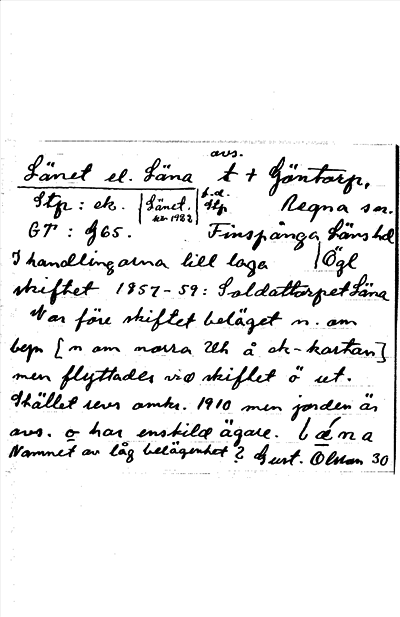 avs.
Länet el. Läna t + Göntorp,
Stp: ek. Länet. ek 1982 b.d. Stp Regna sn.
GT: g65. Finspånga Läns hd
I handlingarna till laga Ögl
skiftet 1857-59: Soldattorpet Läna
Var före skiftet beläget n. om
byn [n om norra Uh å ek-kartan]
men flyttades vid skiftet ö ut.
Stället revs omkr. 1910 men jorden är
avs. o har enskild ägare. læna
Namnet av låg belägenhet? Gust. Olsson 30